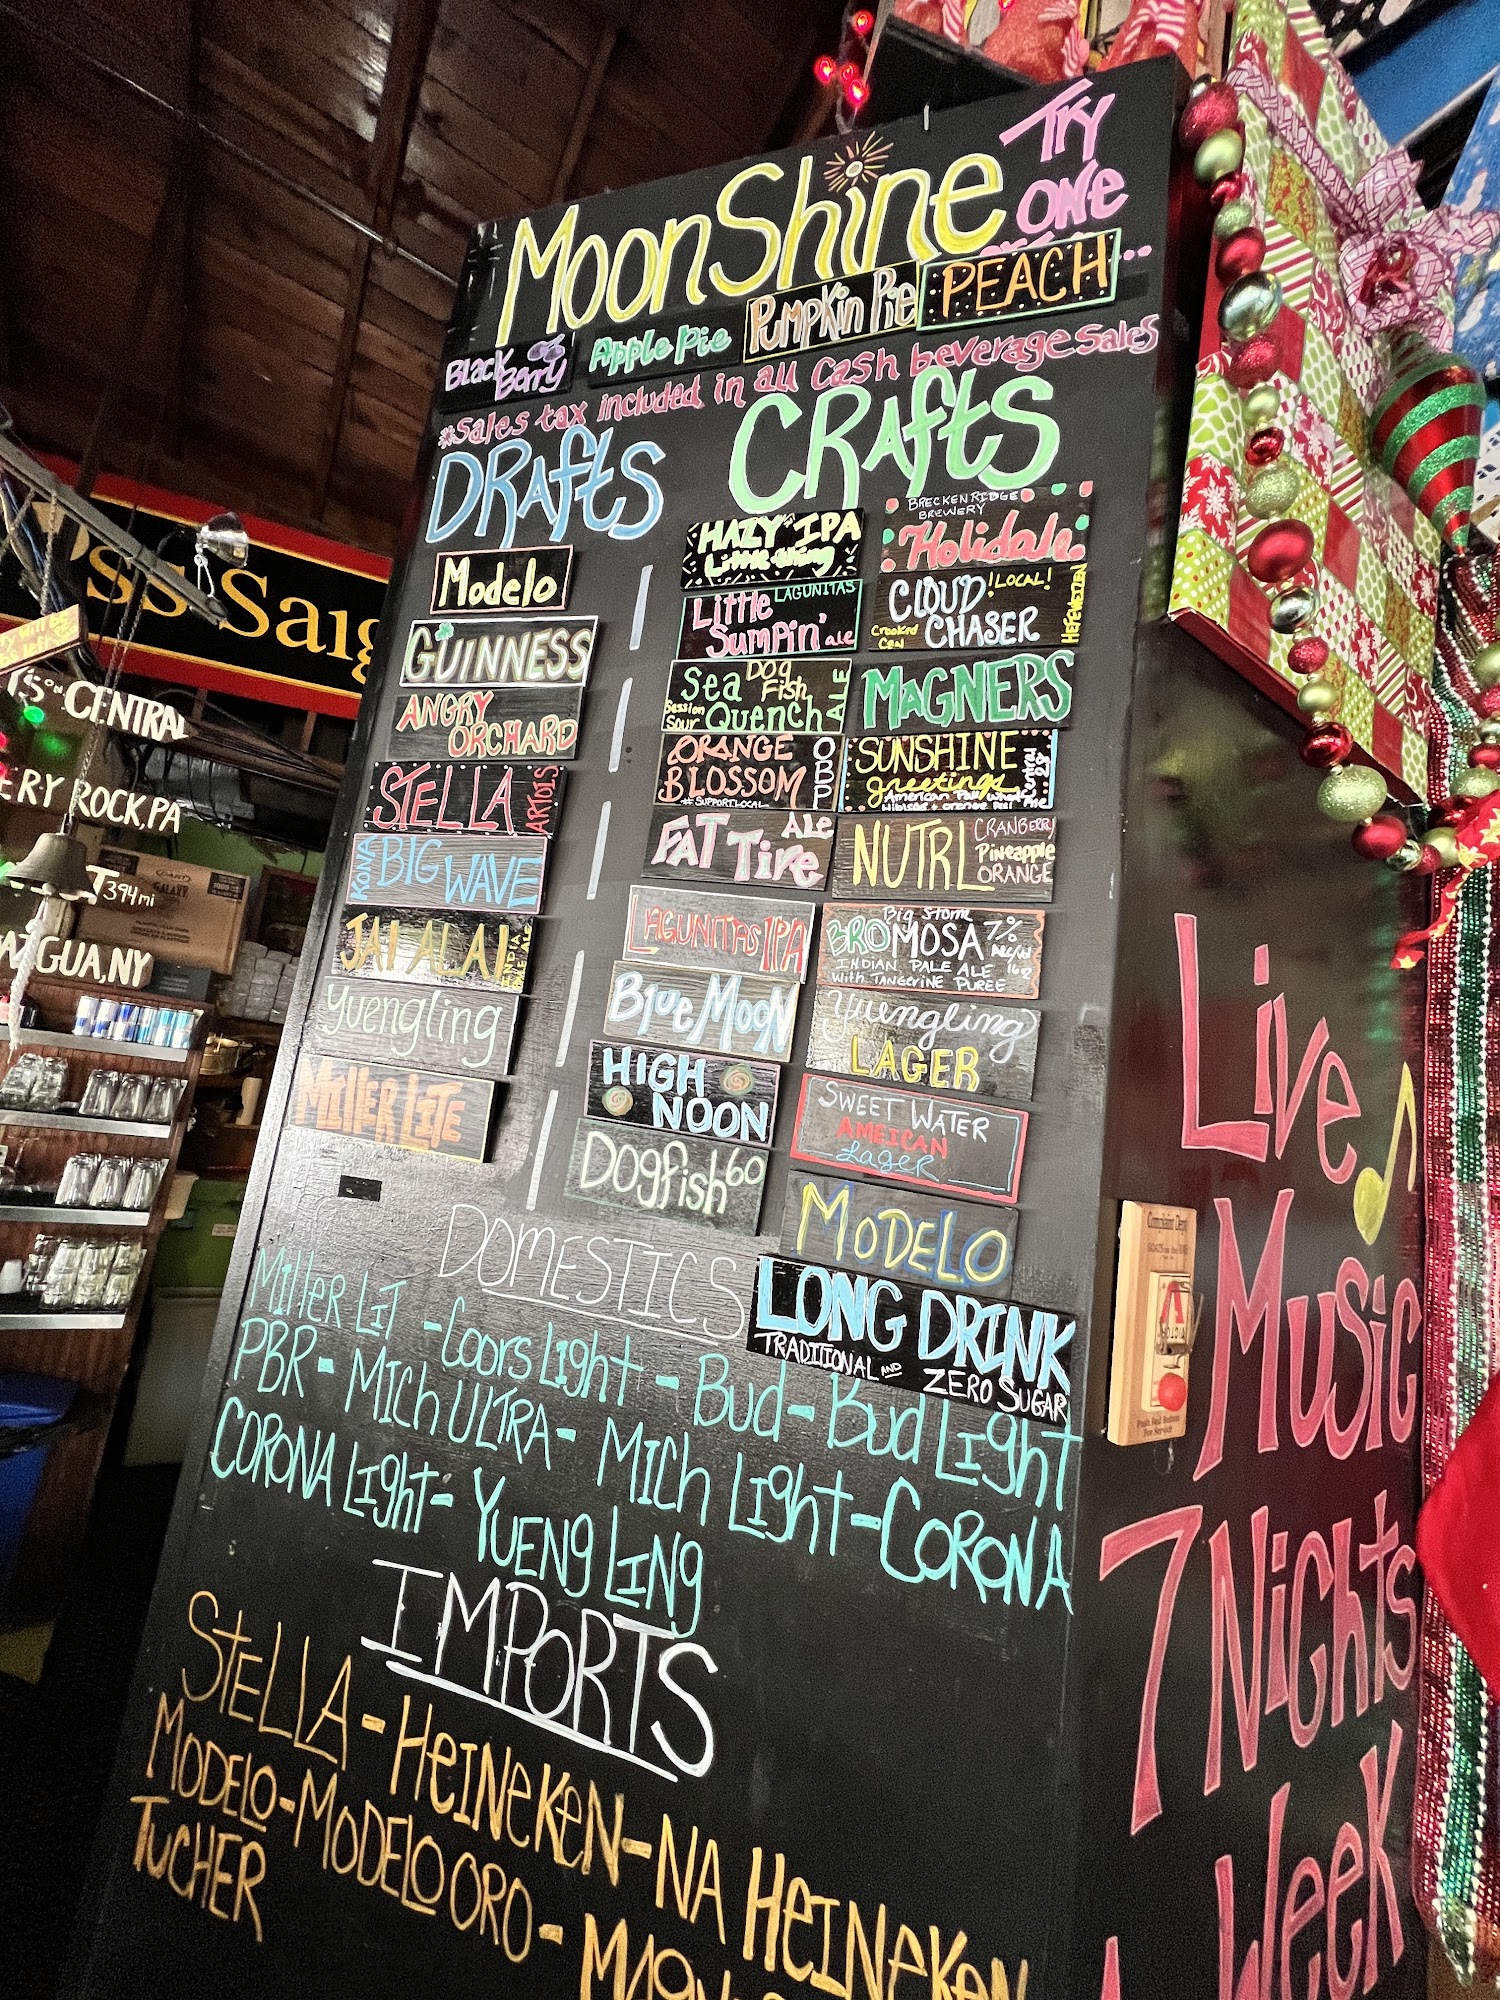 MoonShine
TRY
ONE
Black Berry
Apple Pie
Pumpkin Pie
PEACH
*Sales tax included in all cash beverage sales
DRAftS
Modelo
GUINNESS
ANGRY
ORCHARD
STELLA ARTOIS
KONA BIG WAVE
JAI ALAI INDIA PALE ALE
Yuengling
MILLER LITE
CRAftS
HAZY IPA
Little
LAGUNITAS
Little
Sumpin' ale
Dog
Fish
Sea
Quench ALE
Session
Sour
ORANGE
BLOSSOM
OBP
#SUPPORTLOCAL
FAT TIRE ALE
LAGUNITAS IPA
Blue Moon
HIGH
NOON
Dogfish 60
BRECKENRIDGE
BREWERY
Holidale
CLOUD !LOCAL!
CHASER
Crooked
Can
HEFEWEIZEN
MAGNERS
SUNSHINE
greetings
American Pale Wheat
Hibiscus + orange Peel Ale
NUTRL
CRANBERRY
Pineapple
ORANGE
Big Storm
BROMOSA 7%
INDIAN PALE ALE
WITH TANGERINE PUREE
Yuengling
LAGER
SWEET WATER
AMEICAN
Lager
MODELO
LONG DRINK
TRADITIONAL AND ZERO SUGAR
DOMESTICS
Miller LiT - Coors Light - Bud - Bud Light
PBR - Mich ULTRA - Mich Light - CORONA
CORONA Light - YUENgLiNg
IMPORTS
STELLA - HEINEKEN - NA HEINEKEN
MODELO - MODELO ORO -
TUCHER
Live
Music
7 Nights
A Week
Complaint Dept.
Push Red Button
For Service
ss Saig
CENTRAL
ERY ROCK, PA
394 mi
GUA, NY